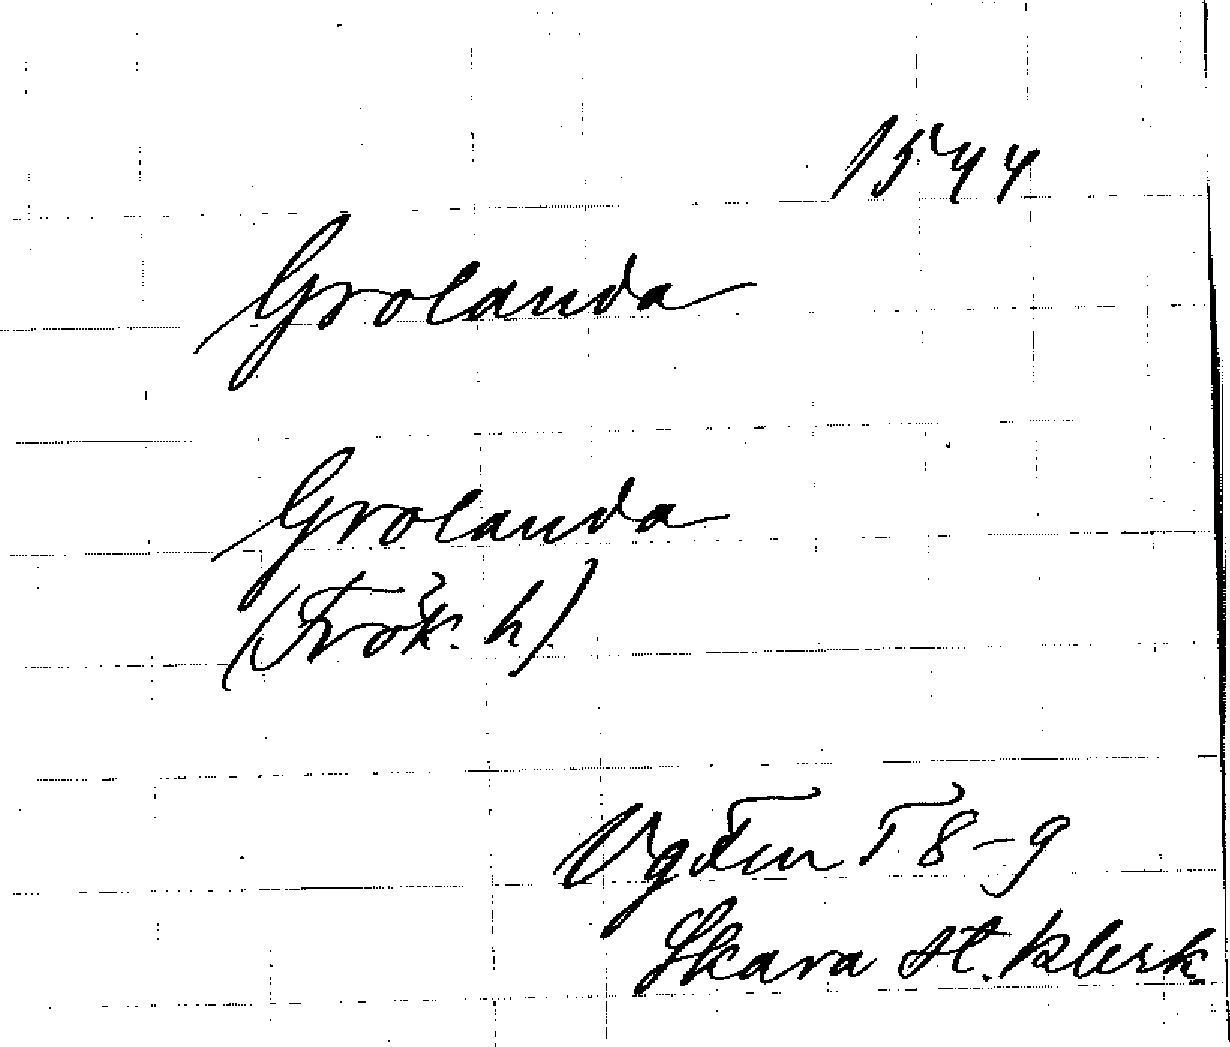 1544
Grolanda
Grolanda
(Frök. h)
Vg Fru T 8-9
Skara st. klerk.